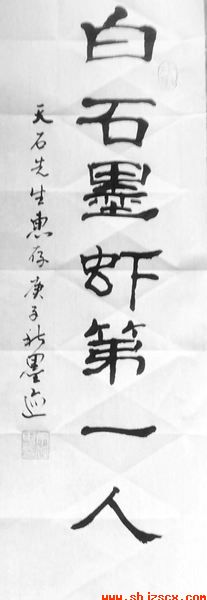 白石墨虾第一人
天石先生惠存庚子秋墨迹
www.shizscx.com